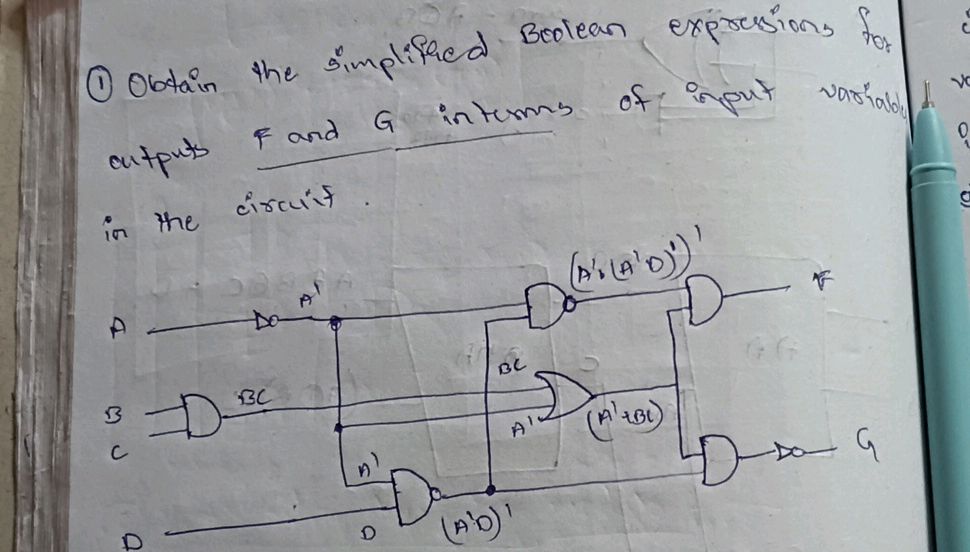 ① Obtain the simplified Boolean expressions for
outputs F and G interms of input variable
in the circuit.
(A'·(A'D)')'
F
A'
A
BC
BC
B
C
A'
(A'+BC)
G
A'
D
(A'D)'
D